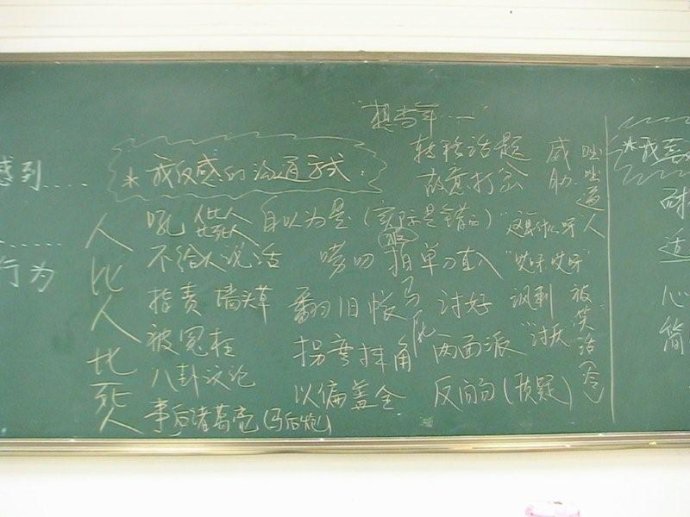 "想当年…"
感到……
*我反感的沟通方式
转移话题 威胁 咄咄逼人
故意打岔
*我喜
人比人比死人
吼 人比人比死人 自以为是(实际是错的)
不给人说话 唠叨 单刀直入 "哎呀哎呀"
行为
指责 墙头草 翻旧帐 拍马屁 讨好 讽刺 被笑话
被冤枉 拐弯抹角 两面派 "讨厌"
八卦议论 以偏盖全 反问句(质疑)
事后诸葛亮(马后炮)
耐
适
心
简